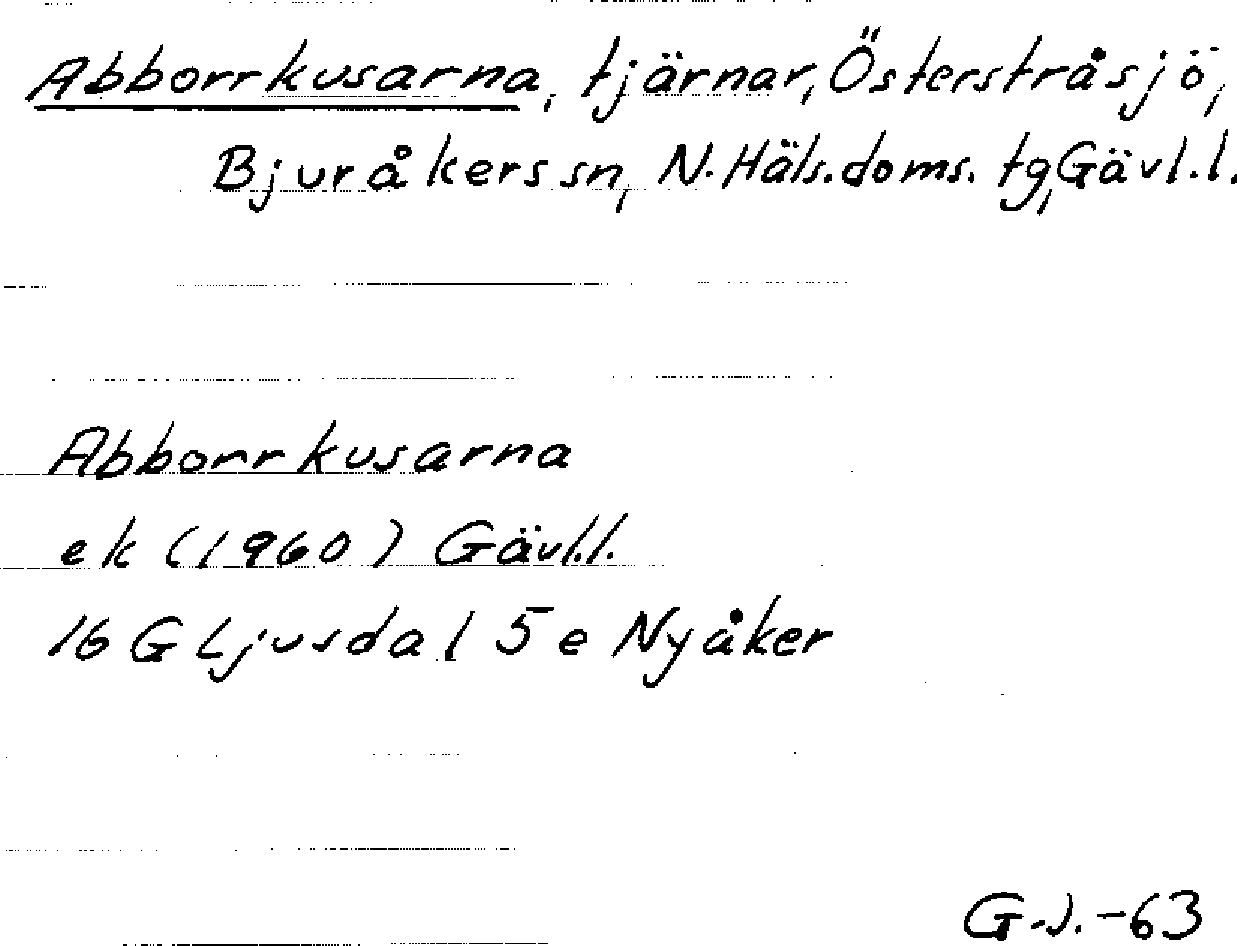 Abborrkusarna, tjärnar, Österstråsjö,
Bjuråkers sn, N. Häls. doms. tg, Gävl. l.
Abborrkusarna
ek (1960) Gävl. l.
16 G Ljusdal 5 e Nyåker
G.J. -63